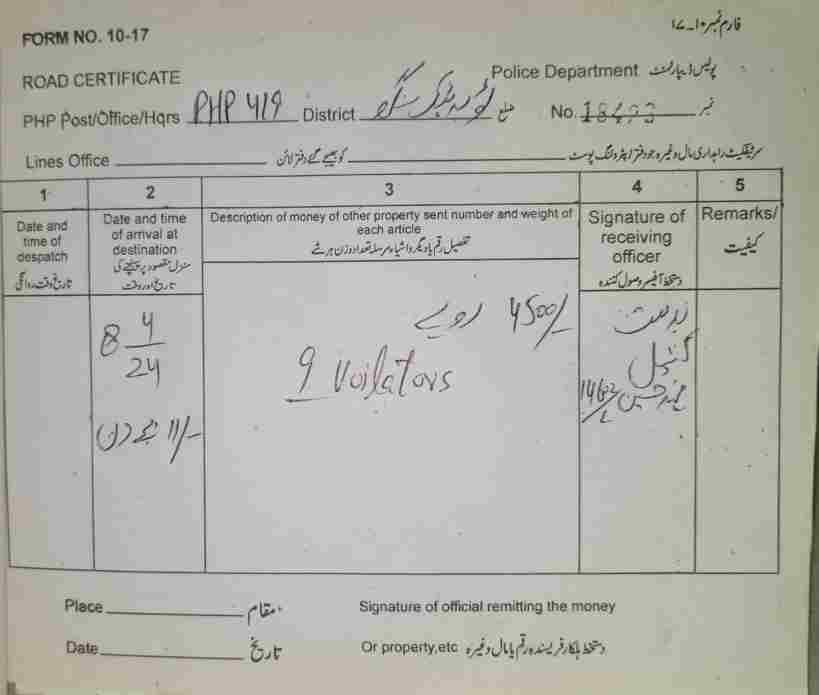 FORM NO. 10-17 فارم نمبر ۱۰-۱۷
ROAD CERTIFICATE Police Department پولیس ڈیپارٹمنٹ
PHP Post/Office/Hqrs PHP 419 District ٹوبہ ٹیک سنگھ ضلع No. 18493 نمبر
Lines Office کو بھیجے گئے دفتر لائن سرٹیفکیٹ راہداری مال وغیرہ جو دفتر پٹرولنگ پوسٹ
1 2 3 4 5
Date and time of despatch تاریخ وقت روانگی
Date and time of arrival at destination منزل مقصود پر پہنچنے کی تاریخ اور وقت
Description of money of other property sent number and weight of each article
تفصیل رقم یا دیگر اشیاء مرسلہ تعداد وزن ہر شے
Signature of receiving officer دستخط آفیسر وصول کنندہ
Remarks/ کیفیت
8 4/24
11/- بجے دن
4500/- روپے
9 Voilators
بدست
کنسٹیبل
محمد حسین
Place مقام Signature of official remitting the money
Date تاریخ Or property,etc دستخط اہلکار فریسندہ رقم یا مال وغیرہ